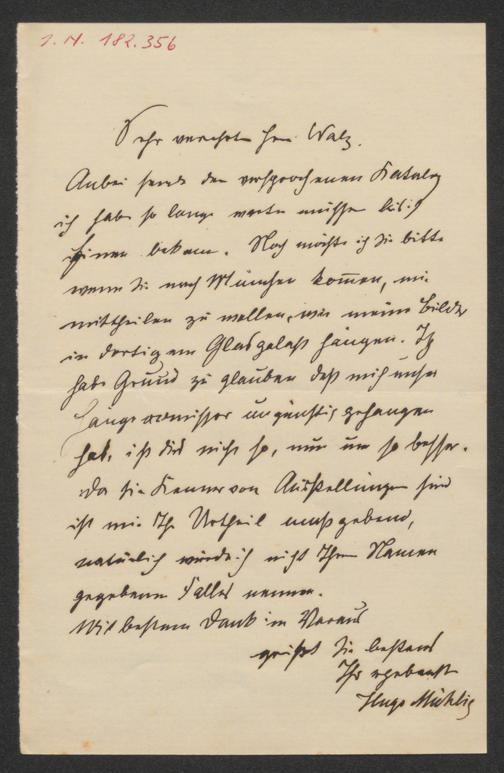 I. N. 182.356
Sehr verehrter Herr Walz.
Anbei sende den versprochenen Katalog
ich habe so lange warten müssen bis ich
einen bekam. Noch möchte ich Sie bitten
wenn Sie nach München kommen, mir
mittheilen zu wollen, wie meine Bilder
in dortigem Glaspalast hängen. Ich
habe Grund zu glauben daß mich unsere
Hängecommission ungünstig gehangen
hat, ist dies nicht so, nun um so besser.
Da Sie Kenner von Ausstellungen sind
ist mir Ihr Urtheil maßgebend,
natürlich würde ich nicht Ihren Namen
gegebenen Falles nennen.
Mit bestem Dank im Voraus
grüßt Sie bestens
Ihr ergebenster
Hugo Mühlig